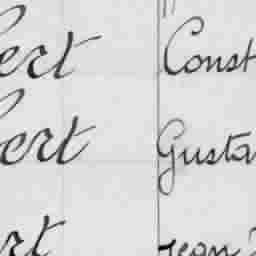 ert Const
ert Gusta
rt Jean